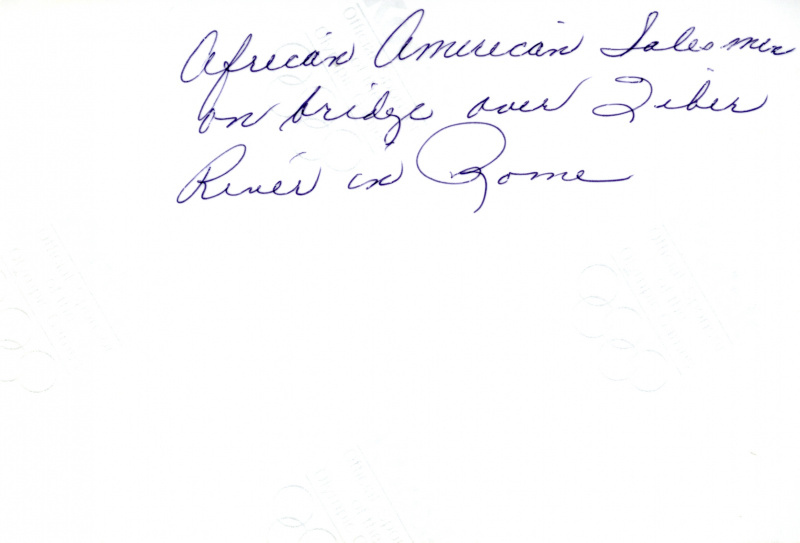 African American Salesmen
on bridge over Tiber
River in Rome